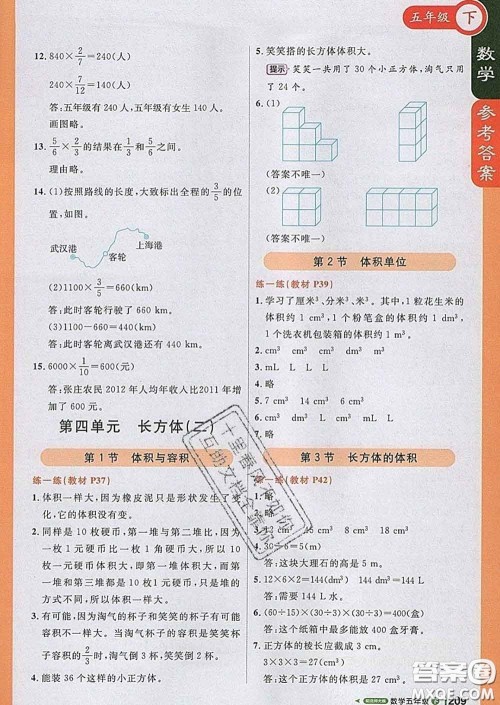 五年级 下
数学 参考答案
12. 840×2/7=240(人)
240×7/12=140(人)
答:五年级有 240 人,五年级有女生 140 人。
画图略。
13. 3/5×2/3的结果在1/3和3/5之间。
理由略。
14. (1)按照路线的长度,大致标出全程的3/5的位置。
武汉港 客轮 上海港
(2)1100×3/5=660(km)
答:此时客轮行驶了 660 km。
(3)1100-660=440(km)
答:此时客轮离武汉港还有 440 km。
15. 6000×1/10=600(元)
答:张庄农民 2012 年人均年收入比2011 年
增加了 600 元。
第四单元 长方体(二)
第 1 节 体积与容积
练一练(教材 P37)
1. 体积一样大,因为橡皮泥只是形状发生了变
化,它能装的没有变。
2. 同样是 10 枚硬币,第一堆与第二堆比,因为
一枚 1 元硬币比一枚 1 角硬币体积大,所以
10 枚 1 元硬币体积大,即第一堆体积大,而第
一堆和第三堆比,都是 10 枚 1 元硬币,体积
没有变。
3. 有可能,因为淘气的杯子和笑笑的杯子有可
能不一样大,当淘气杯子的容积是笑笑杯子
的2/3时,淘气倒了 3 杯,笑笑就倒了 2 杯。
4. 能装 36 个这样的小正方体。
5. 笑笑搭的长方体体积大。
提示 笑笑一共用了 30 个小正方体,淘气只用
了 24 个。
6. (1)
(答案不唯一)
(2)
(答案不唯一)
第 2 节 体积单位
练一练(教材 P39)
1. 学习了厘米³、分米³、米³。其中,1 粒花生米的
体积大约是 1 cm³,1 个粉笔盒的体积大约是
1 dm³,1 个洗衣机包装箱的体积大约是 1 m³。
2. cm³ cm³ dm³ m³
3. mL L L mL
4. 略
5. 略
6. cm³ mL L dm³ m³
7. 略
第 3 节 长方体的体积
练一练(教材 P42)
1. 略
2. 略
3. 略
4. 30÷6=5(m)
答:这块大理石的高是 5 m。
5. 12×6×2=144(dm³) 144 dm³=144 L
答:需要 144 L 水。
6. (60÷15)×(30÷3)×(50÷5)=400(盒)
答:这个纸箱中最多能放 400 盒牙膏。
7. 正方体的棱长应截成 3 cm。
3×3×3=27(cm³)
答:这个正方体的体积是 27 cm³。
十里春风不如你
互助文档全靠你
数学五年级 下 209
答案圈